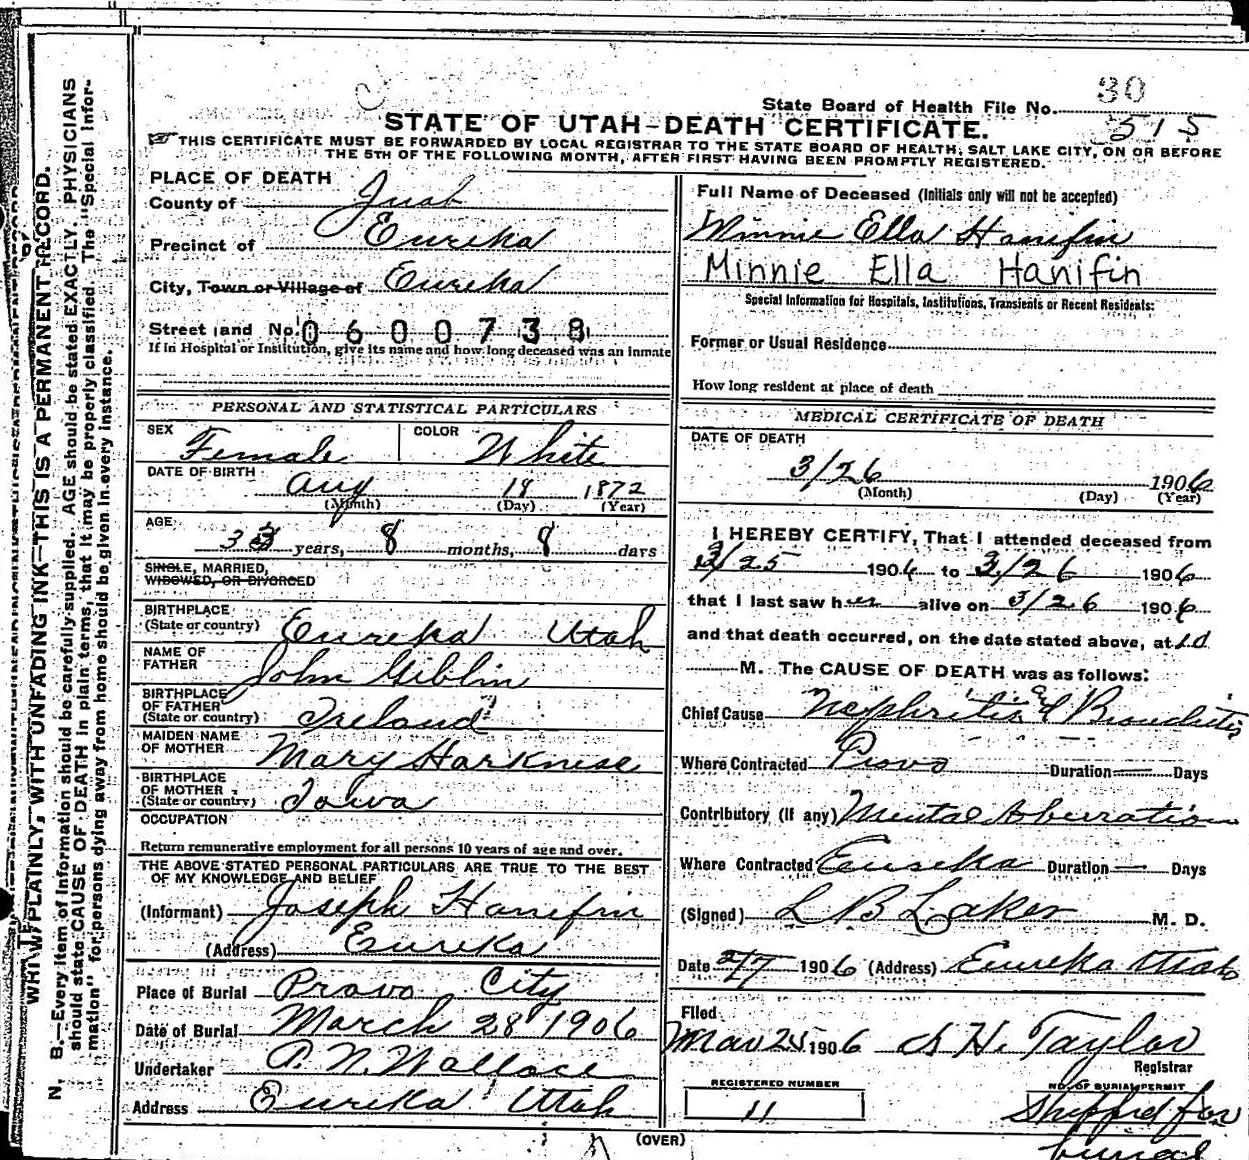 30
State Board of Health File No. 515
STATE OF UTAH—DEATH CERTIFICATE.
THIS CERTIFICATE MUST BE FORWARDED BY LOCAL REGISTRAR TO THE STATE BOARD OF HEALTH, SALT LAKE CITY, ON OR BEFORE
THE 5TH OF THE FOLLOWING MONTH, AFTER FIRST HAVING BEEN PROMPTLY REGISTERED.
PLACE OF DEATH
County of Juab
Precinct of Eureka
City, Town or Village of Eureka
Street and No. 0600738
If in Hospital or Institution, give its name and how long deceased was an inmate
PERSONAL AND STATISTICAL PARTICULARS
SEX Female COLOR White
DATE OF BIRTH Aug 18 1872
(Month) (Day) (Year)
AGE 33 years, 8 months, 9 days
SINGLE, MARRIED,
WIDOWED, OR DIVORCED
BIRTHPLACE
(State or country) Eureka Utah
NAME OF
FATHER John Giblin
BIRTHPLACE
OF FATHER
(State or country) Ireland
MAIDEN NAME
OF MOTHER Mary Harknise
BIRTHPLACE
OF MOTHER
(State or country) Iowa
OCCUPATION
Return remunerative employment for all persons 10 years of age and over.
THE ABOVE STATED PERSONAL PARTICULARS ARE TRUE TO THE BEST
OF MY KNOWLEDGE AND BELIEF
(Informant) Joseph Hanifin
(Address) Eureka
Place of Burial Provo City
Date of Burial March 28 1906
Undertaker P. N. Wallace
Address Eureka Utah
Full Name of Deceased (Initials only will not be accepted)
Minnie Ella Hanifin
Minnie Ella Hanifin
Special Information for Hospitals, Institutions, Transients or Recent Residents:
Former or Usual Residence
How long resident at place of death
MEDICAL CERTIFICATE OF DEATH
DATE OF DEATH
3/26 1906
(Month) (Day) (Year)
I HEREBY CERTIFY, That I attended deceased from
3/25 1906 to 3/26 1906
that I last saw her alive on 3/26 1906
and that death occurred, on the date stated above, at
M. The CAUSE OF DEATH was as follows:
Chief Cause Nephritis & Bronchitis
Where Contracted Provo Duration — Days
Contributory (If any) Mental Aberration
Where Contracted Eureka Duration — Days
(Signed) L B Laker M. D.
Date 1906 (Address) Eureka Utah
Filed
Mar 25 1906 H. Taylor
Registrar
REGISTERED NUMBER
11
NO. OF BURIAL PERMIT
Shipped for
burial
(OVER)
WRITE PLAINLY, WITH UNFADING INK—THIS IS A PERMANENT RECORD.
N. B.—Every item of information should be carefully supplied. AGE should be stated EXACTLY. PHYSICIANS
should state CAUSE OF DEATH in plain terms, that it may be properly classified. The "Special Infor-
mation" for persons dying away from home should be given in every instance.